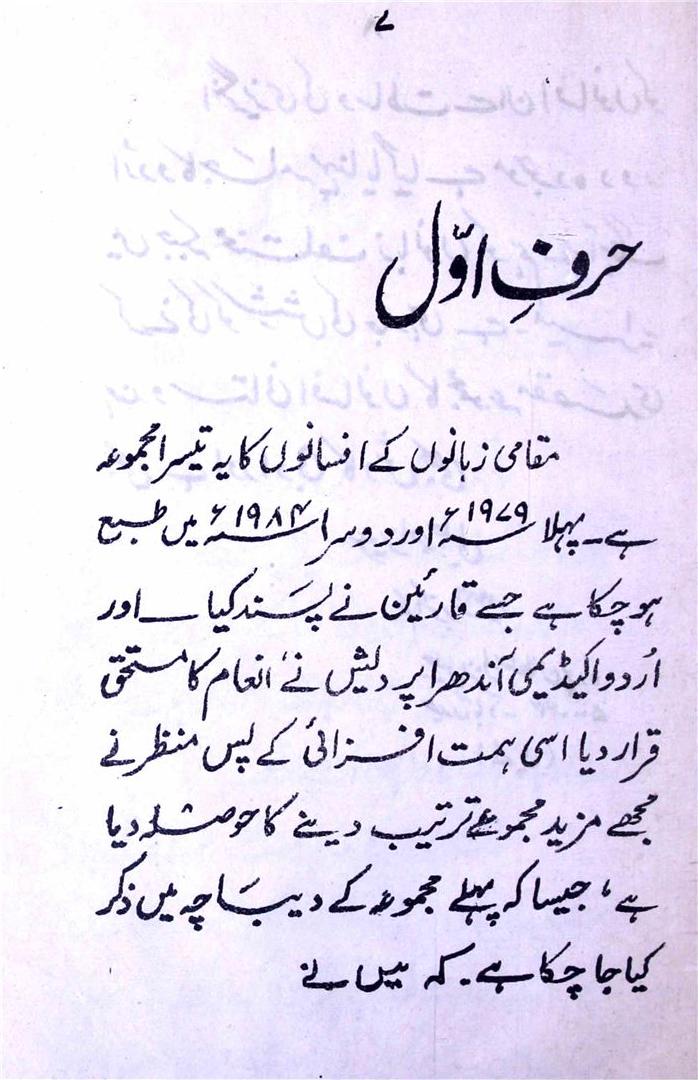 ۷
حرفِ اوّل
مقامی زبانوں کے افسانوں کا یہ تیسرا مجموعہ
ہے۔ پہلا ۱۹۷۹ء اور دوسرا ۱۹۸۴ء میں طبع
ہو چکا ہے جسے قارئین نے پسند کیا۔ اور
اُردو اکیڈیمی آندھرا پردیش نے انعام کا مستحق
قرار دیا اسی ہمت افزائی کے پس منظر نے
مجھے مزید مجموعے ترتیب دینے کا حوصلہ دیا
ہے، جیسا کہ پہلے مجموعہ کے دیباچہ میں ذکر
کیا جا چکا ہے۔ کہ میں نے